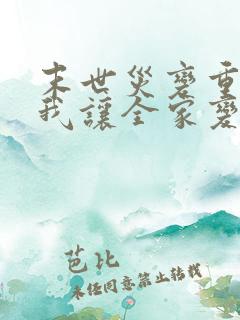 末世災變重
我讓全家變
芭比
未經同意禁止轉載